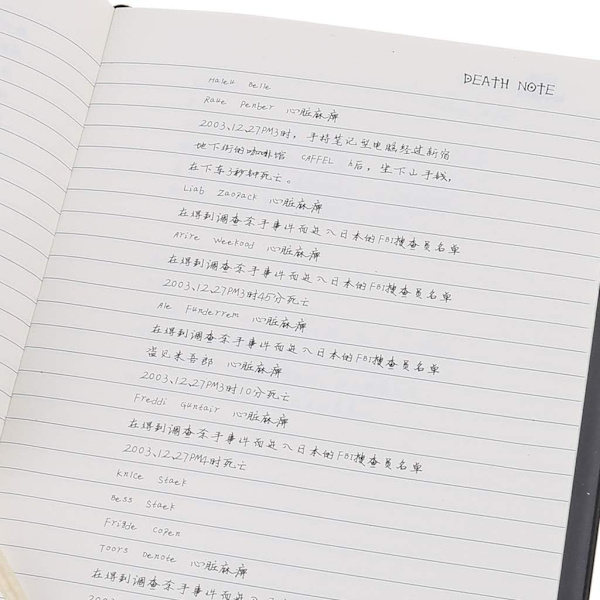 DEATH NOTE
Haley Belle
Raye Penber 心脏麻痹
2003、12、27PM3时，手持笔记型电脑经过新宿
地下街的咖啡馆 CAFFEL 后，坐下山手线，
在下车3秒钟死亡。
Liab Zaopack 心脏麻痹
在得到调查杀手事件而进入日本的FBI搜查员名单
Arire weekood 心脏麻痹
在得到调查杀手事件而进入日本的FBI搜查员名单
2003、12、27PM3时45分死亡
Ale Funderrem 心脏麻痹
在得到调查杀手事件而进入日本的FBI搜查员名单
盗见来吾郎 心脏麻痹
2003、12、27PM3时10分死亡
Freddi Guntair 心脏麻痹
在得到调查杀手事件而进入日本的FBI搜查员名单
2003、12、27PM4时死亡
Knice Staek
Bess Staek
Fridde copen
Toors Denote 心脏麻痹
在得到调查杀手事件而进入日本的FBI搜查员名单